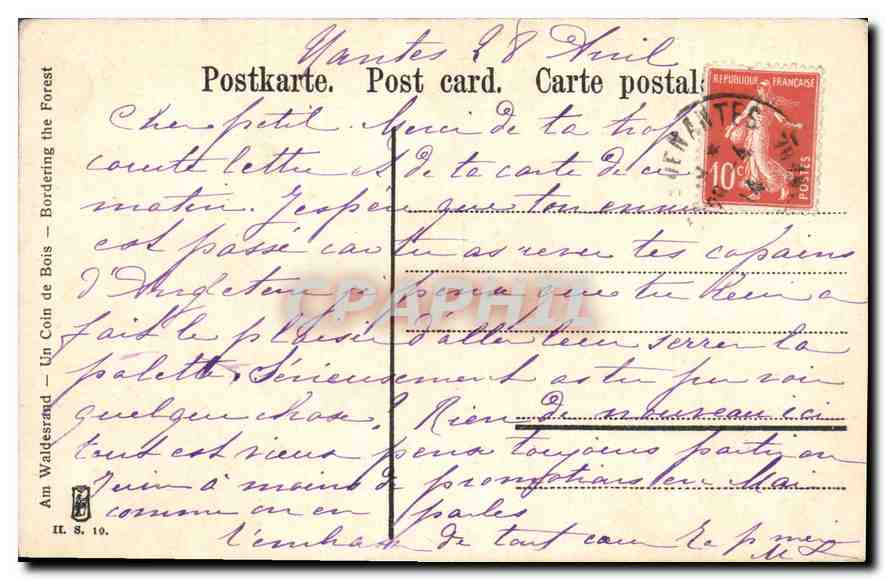 Nantes 28 Avril
Postkarte. Post card. Carte postale
Cher petit. Merci de ta trop
courte lettre et de ta carte de ce
matin. J'espère que ton ennui
est passé car tu as revu tes copains
d'Angleterre je pense que tu leur a
fait le plaisir d'aller leur serrer la
palette. Sérieusement as tu pu voir
quelque chose? Rien de nouveau ici
tout est vieux pense toujours partir en
Juin à moins de promotions en Mai
comme on en parle
t'embrasse de tout coeur
REPUBLIQUE FRANÇAISE
10c
POSTES
NANTES
CPAPHIL
Am Waldesrand — Un Coin de Bois — Bordering the Forest
H. S. 10.